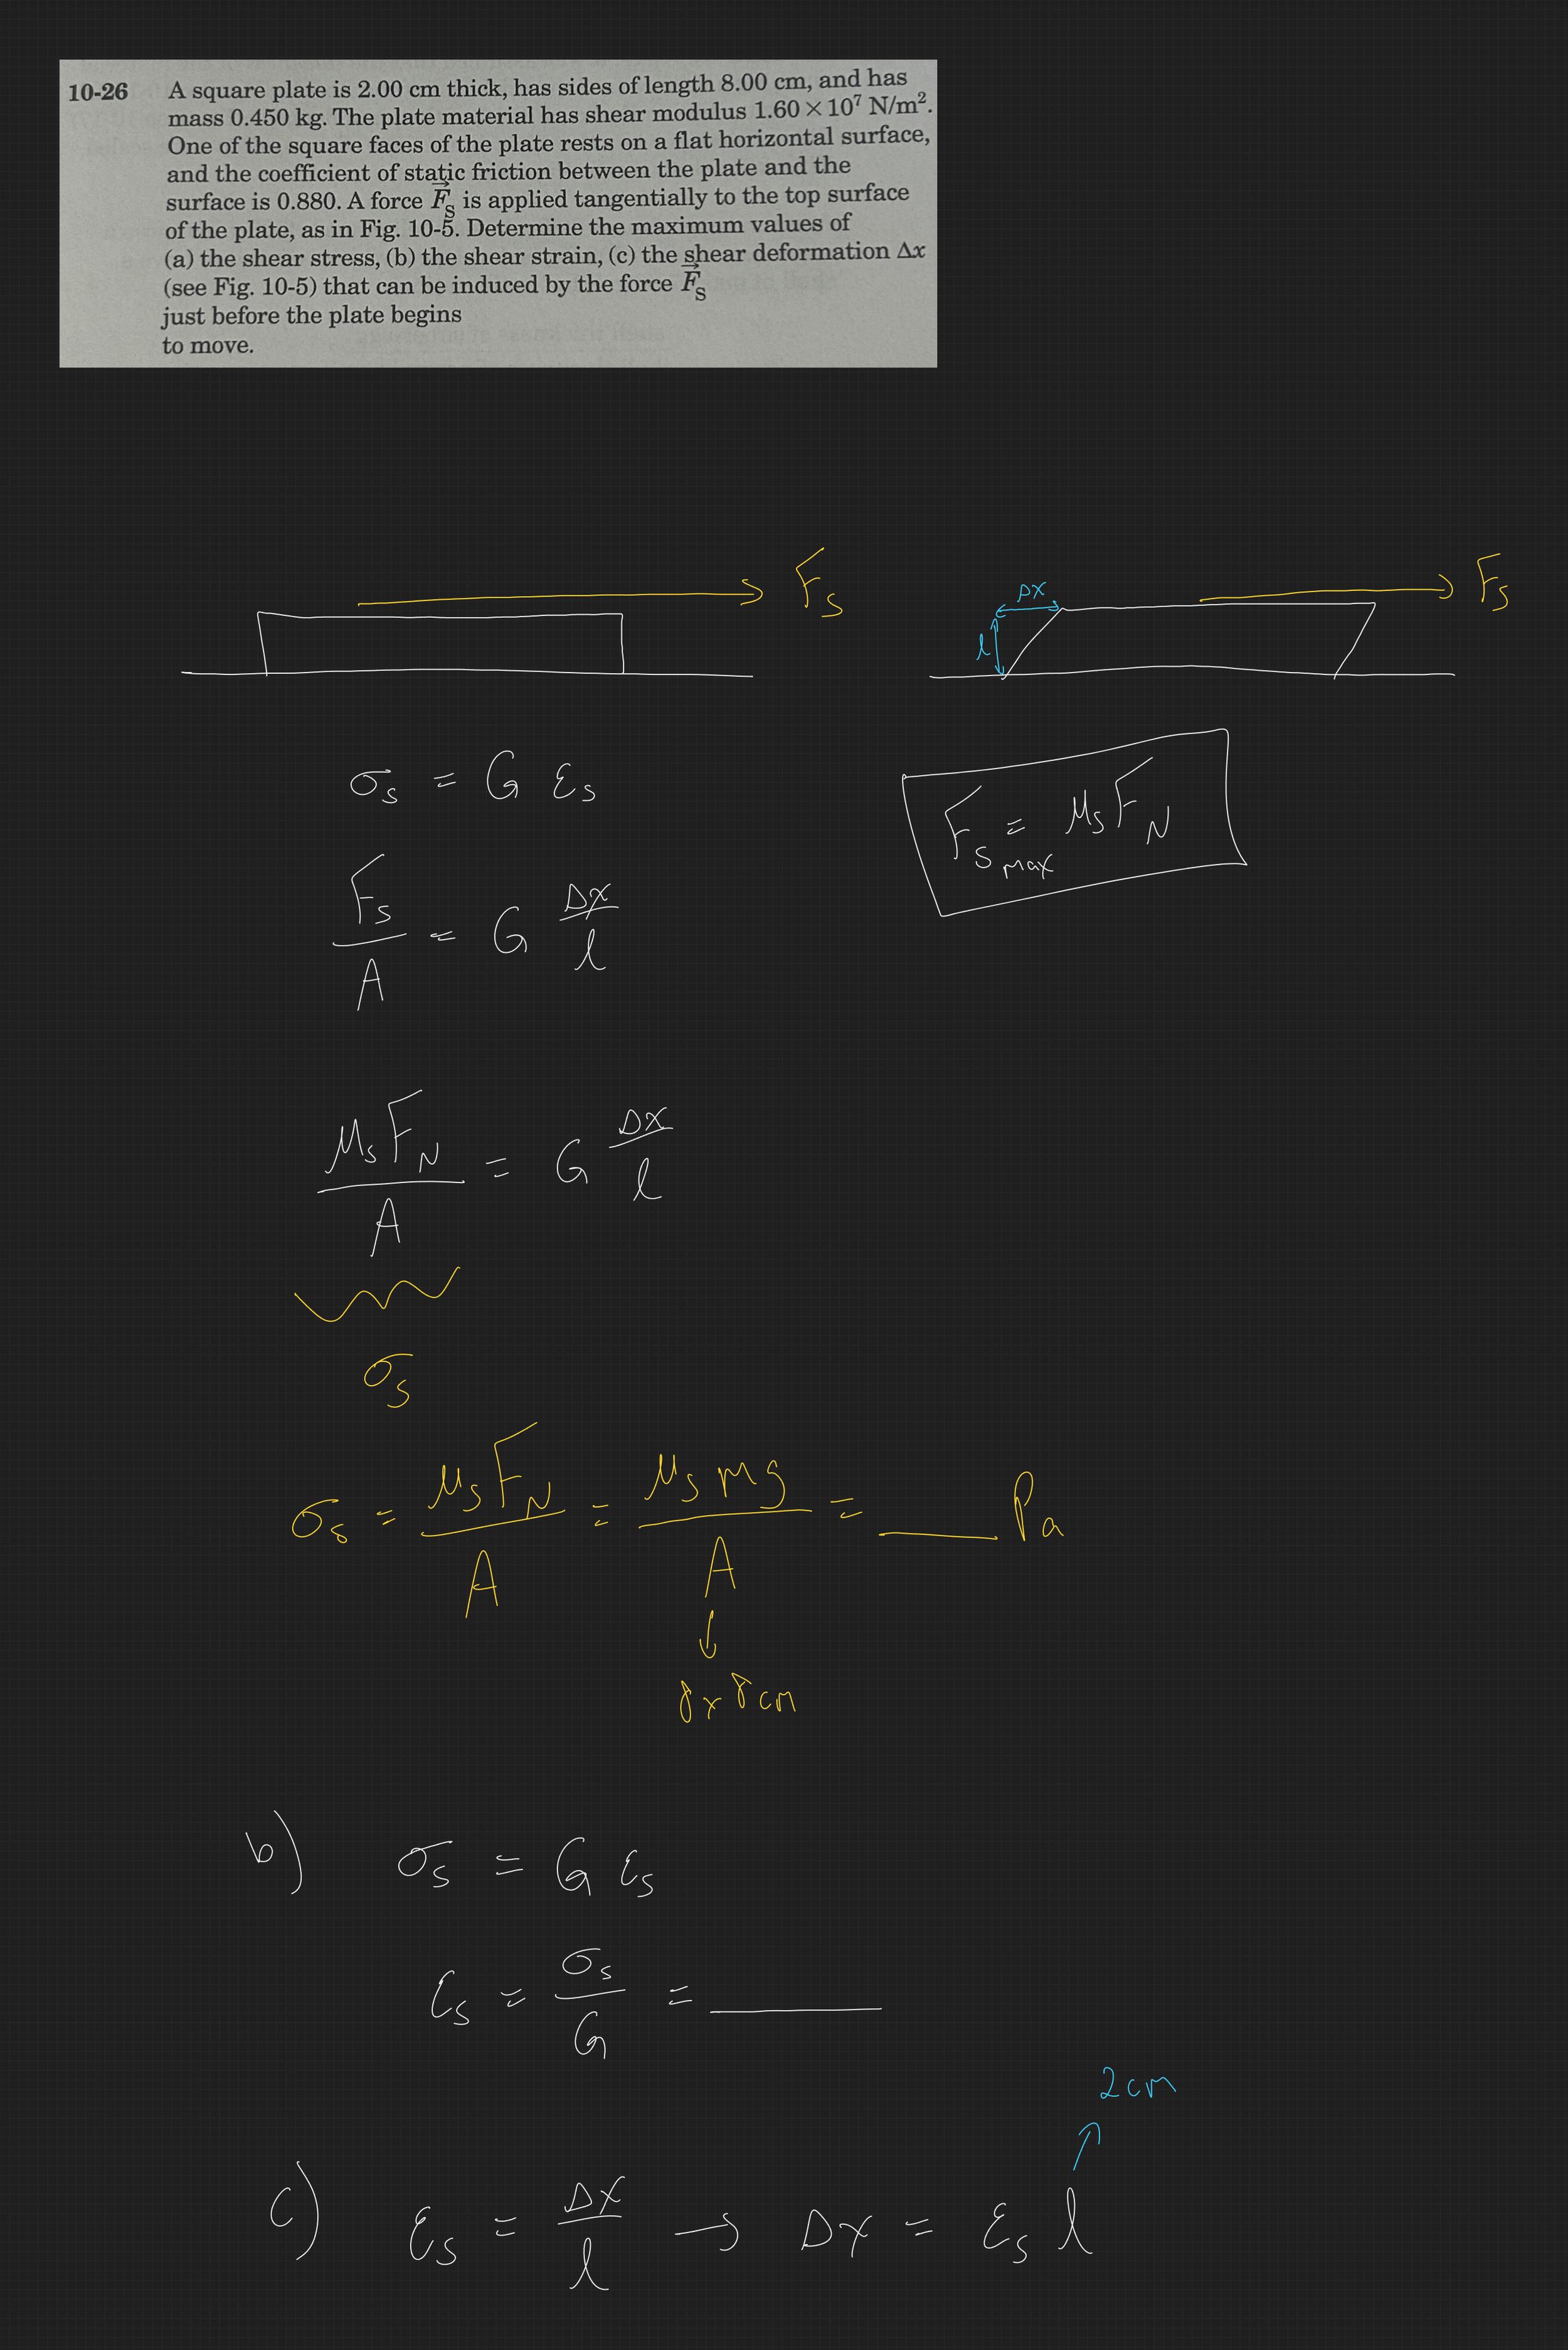 10-26 A square plate is 2.00 cm thick, has sides of length 8.00 cm, and has
mass 0.450 kg. The plate material has shear modulus 1.60 × 10⁷ N/m².
One of the square faces of the plate rests on a flat horizontal surface,
and the coefficient of static friction between the plate and the
surface is 0.880. A force F⃗_S is applied tangentially to the top surface
of the plate, as in Fig. 10-5. Determine the maximum values of
(a) the shear stress, (b) the shear strain, (c) the shear deformation Δx
(see Fig. 10-5) that can be induced by the force F⃗_S
just before the plate begins
to move.
F_s
Δx
l
F_s
σ_s = G ε_s
F_s max = μ_s F_N
F_s / A = G Δx / l
μ_s F_N / A = G Δx / l
σ_s
σ_s = μ_s F_N / A = μ_s m g / A = ____ Pa
8 x 8 cm
b) σ_s = G ε_s
ε_s = σ_s / G = ____
2 cm
c) ε_s = Δx / l → Δx = ε_s l